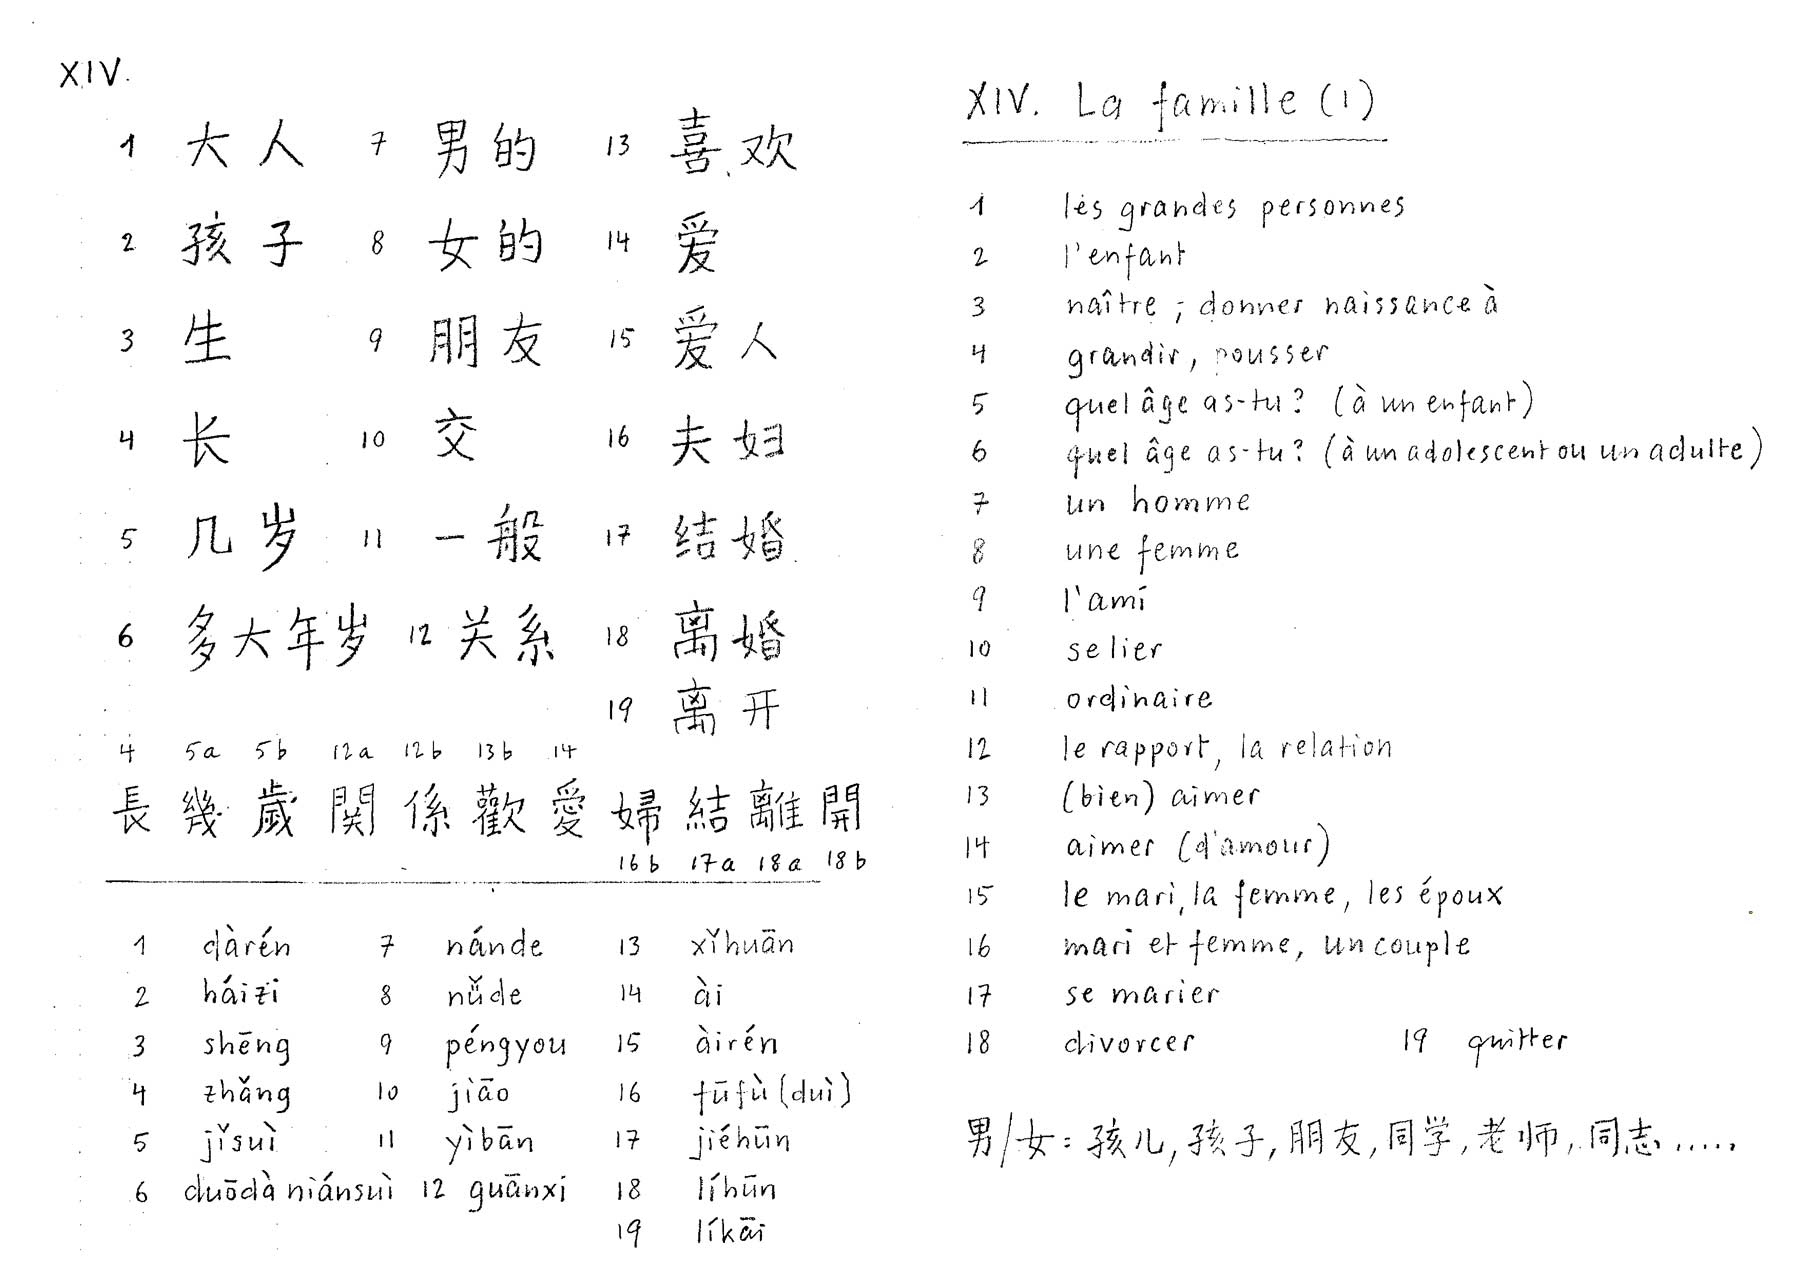 XIV.
1 大人 7 男的 13 喜欢
2 孩子 8 女的 14 爱
3 生 9 朋友 15 爱人
4 长 10 交 16 夫妇
5 几岁 11 一般 17 结婚
6 多大年岁 12 关系 18 离婚
19 离开
4 5a 5b 12a 12b 13b 14
長 幾 歲 関 係 歡 愛 婦 結 離 開
16b 17a 18a 18b
1 dàrén 7 nánde 13 xǐhuān
2 háizi 8 nǚde 14 ài
3 shēng 9 péngyou 15 àirén
4 zhǎng 10 jiāo 16 fūfù (duì)
5 jǐsuì 11 yìbān 17 jiéhūn
6 duōdà niánsuì 12 guānxi 18 líhūn
19 líkāi
XIV. La famille (1)
1 les grandes personnes
2 l'enfant
3 naître ; donner naissance à
4 grandir, pousser
5 quel âge as-tu? (à un enfant)
6 quel âge as-tu? (à un adolescent ou un adulte)
7 un homme
8 une femme
9 l'ami
10 se lier
11 ordinaire
12 le rapport, la relation
13 (bien) aimer
14 aimer (d'amour)
15 le mari, la femme, les époux
16 mari et femme, un couple
17 se marier
18 divorcer 19 quitter
男/女: 孩儿, 孩子, 朋友, 同学, 老师, 同志.....